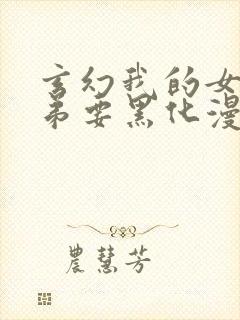 玄幻我的女
弟要黑化漫
農慧芳